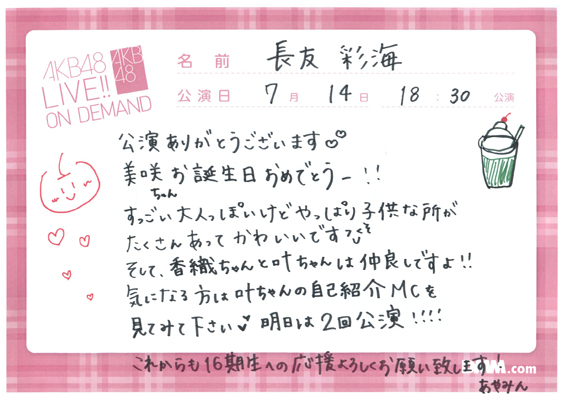 AKB48
LIVE!!
ON DEMAND
AKB
48
名前 長友 彩海
公演日 7月 14日 18:30 公演
公演ありがとうございます
美咲ちゃんお誕生日おめでとうー!!
すっごい大人っぽいけどやっぱり子供な所が
たくさんあってかわいいです
そして、香織ちゃんと叶ちゃんは仲良しですよ!!
気になる方は叶ちゃんの自己紹介MCを
見てみて下さい 明日は2回公演!!!!
これからも16期生への応援よろしくお願い致します!
.com
あやみん